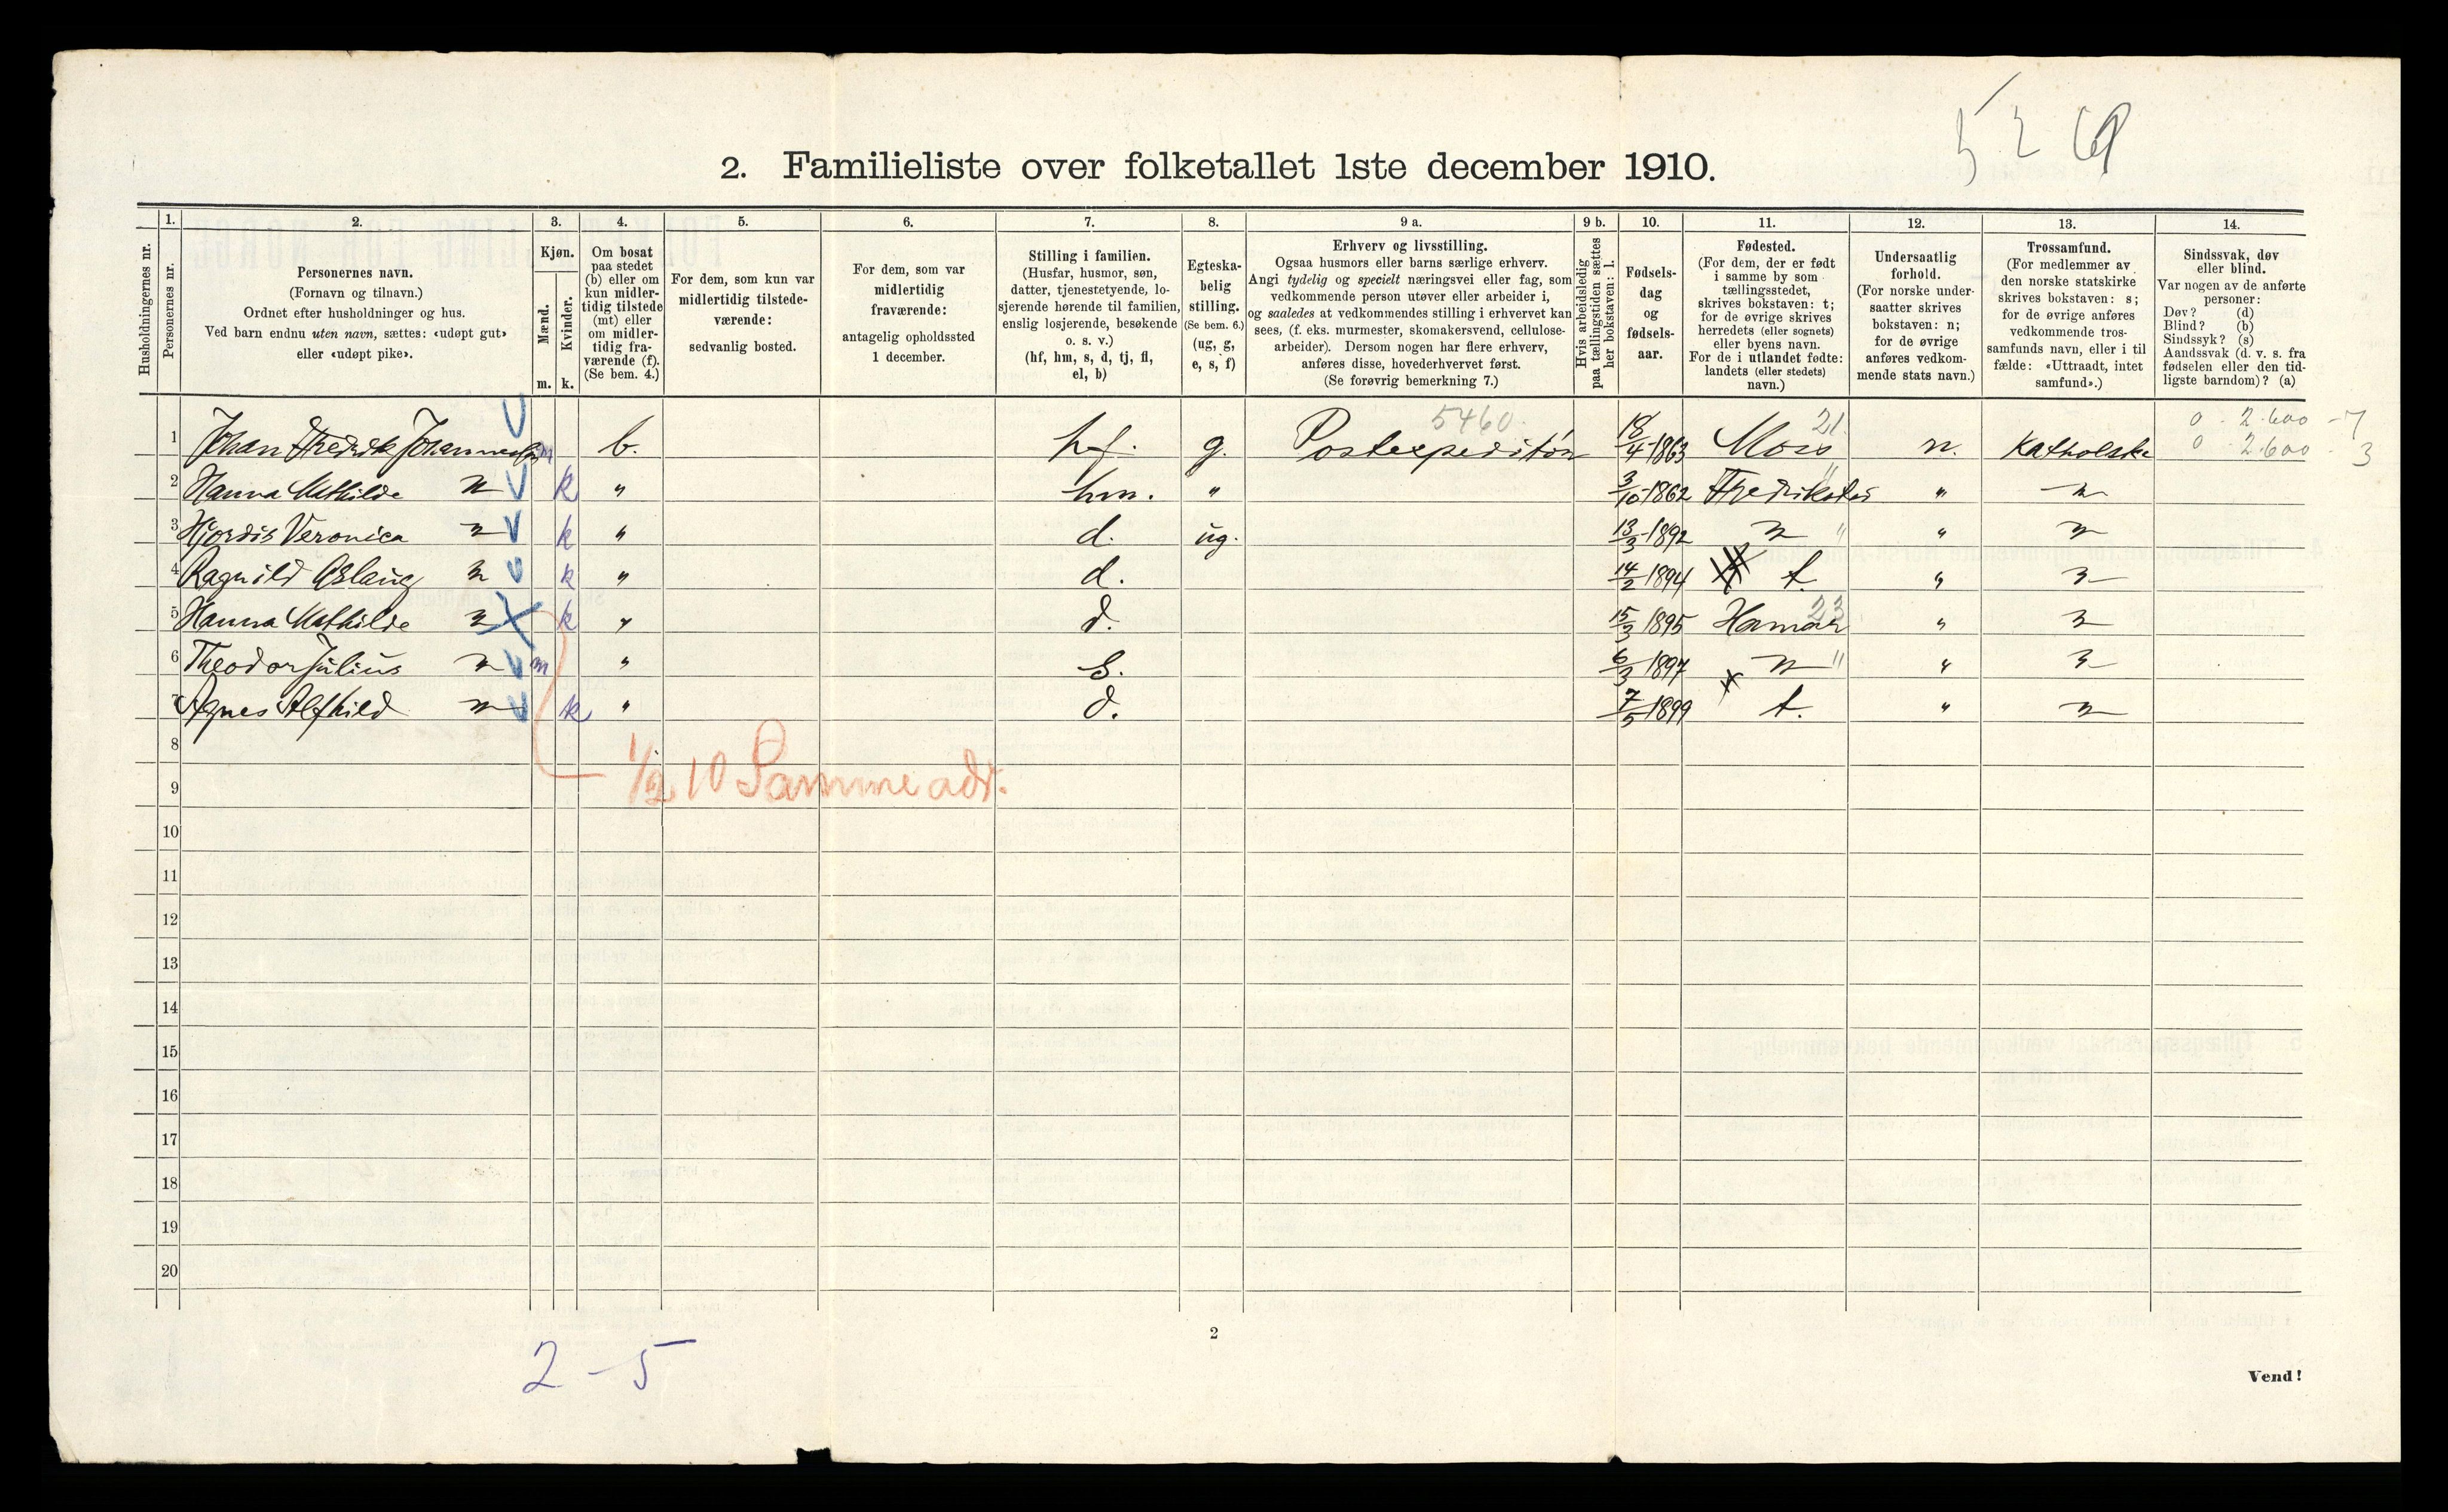 5 2 69
2. Familieliste over folketallet 1ste december 1910.
Husholdningernes nr.
1.
Personernes nr.
2.
Personernes navn.
(Fornavn og tilnavn.)
Ordnet efter husholdninger og hus.
Ved barn endnu uten navn, sættes: «udøpt gut»
eller «udøpt pike».
3.
Kjøn.
Mænd.
m.
Kvinder.
k.
4.
Om bosat
paa stedet
(b) eller om
kun midler-
tidig tilstede
(mt) eller
om midler-
tidig fra-
værende (f).
(Se bem. 4.)
5.
For dem, som kun var
midlertidig tilstede-
værende:
sedvanlig bosted.
6.
For dem, som var
midlertidig
fraværende:
antagelig opholdssted
1 december.
7.
Stilling i familien.
(Husfar, husmor, søn,
datter, tjenestetyende, lo-
sjerende hørende til familien,
enslig losjerende, besøkende
o. s. v.)
(hf, hm, s, d, tj, fl,
el, b)
8.
Egteska-
belig
stilling.
(Se bem. 6.)
(ug, g,
e, s, f)
9 a.
Erhverv og livsstilling.
Ogsaa husmors eller barns særlige erhverv.
Angi tydelig og specielt næringsvei eller fag, som
vedkommende person utøver eller arbeider i,
og saaledes at vedkommendes stilling i erhvervet kan
sees, (f. eks. murmester, skomakersvend, cellulose-
arbeider). Dersom nogen har flere erhverv,
anføres disse, hovederhvervet først.
(Se forøvrig bemerkning 7.)
9 b.
Hvis arbeidsledig
paa tællingstiden sættes
her bokstaven: l.
10.
Fødsels-
dag
og
fødsels-
aar.
11.
Fødested.
(For dem, der er født
i samme by som
tællingsstedet,
skrives bokstaven: t;
for de øvrige skrives
herredets (eller sognets)
eller byens navn.
For de i utlandet fødte:
landets (eller stedets)
navn.)
12.
Undersaatlig
forhold.
(For norske under-
saatter skrives
bokstaven: n;
for de øvrige
anføres vedkom-
mende stats navn.)
13.
Trossamfund.
(For medlemmer av
den norske statskirke
skrives bokstaven: s;
for de øvrige anføres
vedkommende tros-
samfunds navn, eller i til
fælde: «Uttraadt, intet
samfund».)
14.
Sindssvak, døv
eller blind.
Var nogen av de anførte
personer:
Døv? (d)
Blind? (b)
Sindssyk? (s)
Aandssvak (d. v. s. fra
fødselen eller den tid-
ligste barndom)? (a)
5460. 21. 0 - 2.600 - 7
1 Johan Fredrik Johannessen m b. hf. g. Postexpeditør 18/4-1863 Moss n. Katholske 0 2.600 - 3
2 Hanna Mathilde " k " hm. " 3/10-1862 Fredrikstad " "
3 Hjordis Veronica " k " d. ug. 13/3-1892 " " " "
4 Ragnild Aslaug " k " d. 14/2 1894 t " "
5 Hanna Mathilde " k " d. 15/3 1895 Hamar 23 " "
6 Theodor Julius " m " s. 6/3 1897 " " " "
7 Agnes Alfhild " k " d. 7/5 1899 t. " "
8
1/2 10 Samme adr.
9
10
11
12
13
14
15
16
17
18
19
20
2
2 - 5
Vend!